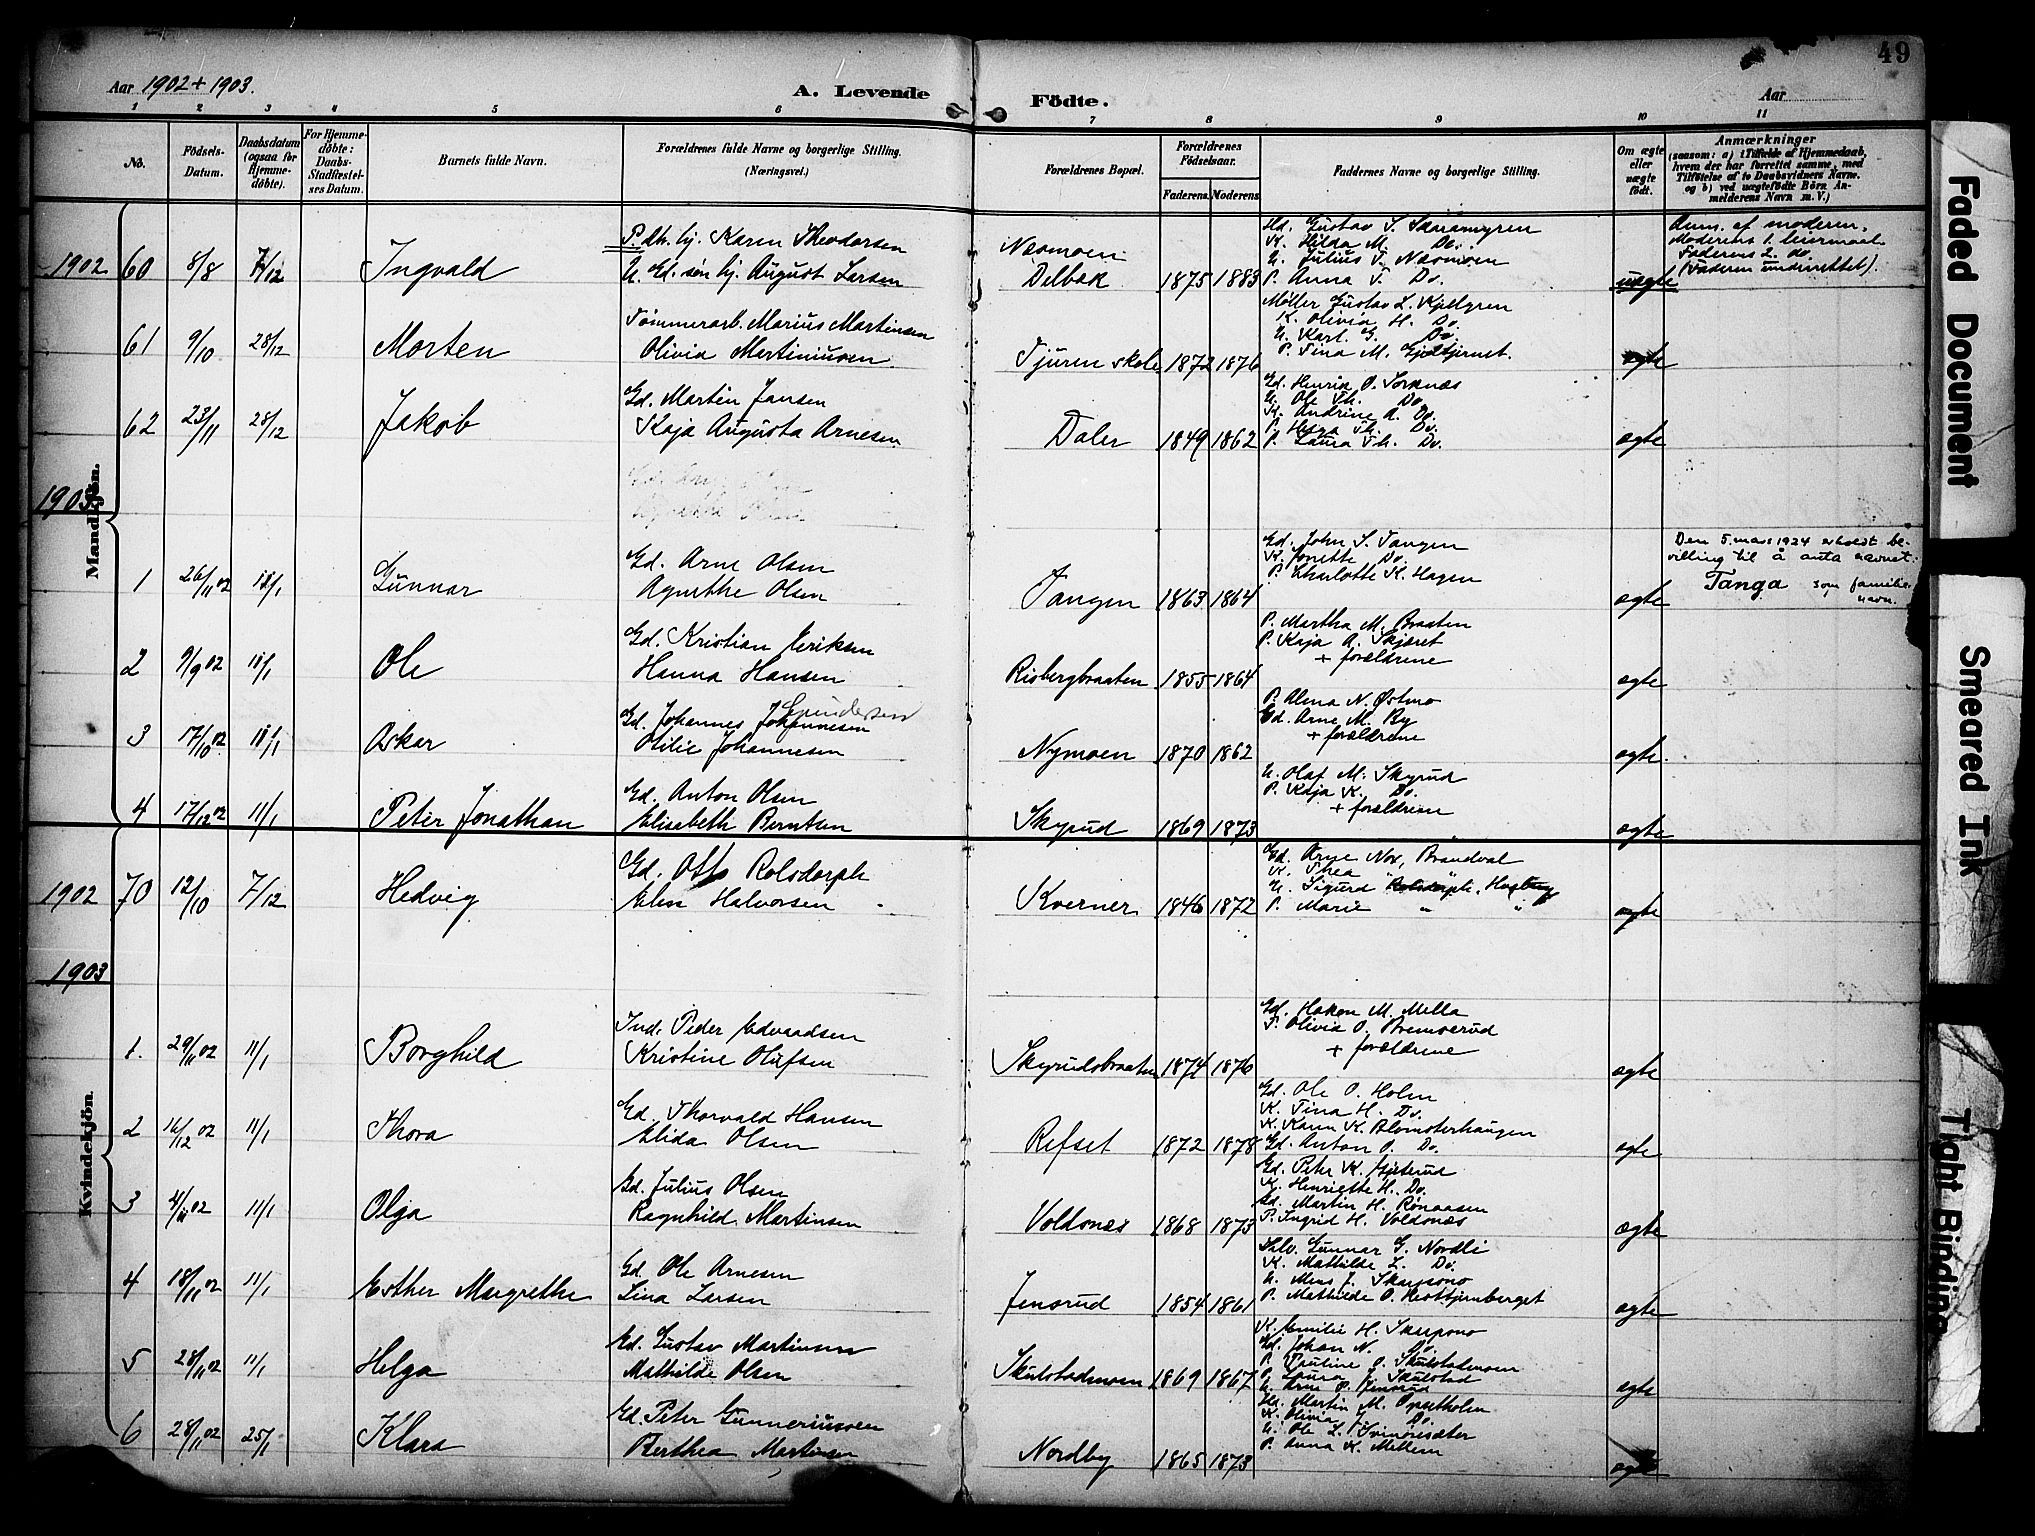 49
Aar 1902 + 1903.
A. Levende Födte.
Aar
1 2 3 4 5 6 7 8 9 10 11
No.
Födsels-Datum.
Daabsdatum (ogsaa for Hjemme-döbte).
For Hjemme-döbte: Daabs-Stadfæstel-ses Datum.
Barnets fulde Navn.
Forældrenes fulde Navne og borgerlige Stilling. (Næringsvei.)
Forældrenes Bopæl.
Forældrenes Födselsaar.
Faderens. Moderens.
Faddernes Navne og borgerlige Stilling.
Om ægte eller uægte födt.
Anmærkninger
(saasom: a) i Tilfælde af Hjemmedaab, hvem der har forrettet samme, med Tilföielse af to Daabsvidners Navne. og b) ved uægtefödte Börn An-melderens Navn m. V.)
Mandkjön.
1902 60 8/8 7/12 Ingvald
P. dtr. hj. Karen Theodorsen
U. Gd. søn hj. August Larsen
Næsmoen
Delbæk 1875 1883
K. Hilda M. Do.
U. Julius T. Næsmoen
P. Anna T. Do.
uægte
Anm. af moderen.
Moderens 1. leiermaal
Faderens 2. do.
(Faderen underrettet).
61 9/10 28/12 Morten
Tømmerarb. Marius Martinsen
Olivia Martiniussen
Tjuren skole 1872 1876
Møller Gustav L. Kjellgren
K. Olivia H. Do.
U. Karl G. Do.
P. Tina M.
ægte
62 23/11 28/12 Jakob
Gd. Martin Jansen
Kaja Augusta Arnesen
Daler 1849 1862
Gd. Henrik O. Sorknæs
U. Ole Th. Do.
K. Andrine A. Do.
P. Helga Th. Do.
P. Laura Th. Do.
ægte
1903
1 26/11 02 18/1 Gunnar
Gd. Arne Olsen
Agnethe Olsen
Tangen 1863 1864
Gd. John S. Tangen
K. Jonette Do.
P. Charlotte K. Hagen
ægte
Den 5. mars 1924 erholdt be-
villing til å anta navnet:
Tanga som familie-
navn.
2 9/9 02 18/1 Ole
Gd. Kristian Eriksen
Hanna Hansen
Risbergbraaten 1855 1864
P. Martha M. Braaten
P. Kaja A. Skjæret
+ forældrene
ægte
3 17/10 02 18/1 Oskar
Gd. Johannes Johannesen
Otilie Johannesen
Nymoen 1870 1862
P. Alma N. Østmo
Gd. Arne M. By
+ forældrene
ægte.
4 17/12 02 11/1 Peter Jonathan
Gd. Anton Olsen
Elisabeth Berntsen
Skyrud 1869 1873
U. Olaf M. Skyrud
P. Kaja K. Do.
+ forældrene
ægte
Kvindekjön.
1902 70 12/10 7/12 Hedvig
Gd. Otto Rolsdorph
Elen Halvorsen
Kverner 1846 1872
Gd. Arne Nor, Brandval
K. Thea "
U. Sigurd
P. Marie " "
ægte
1903
1. 29/11 02 11/1 Borghild
Ind. Peder Edvardsen
Kristine Olufsen
Skyrudsbraaten 1874 1876
Gd. Hakon M. Mella
P. Olivia O.
+ forældrene
ægte
2 16/12 02 11/1 Thora
Gd. Thorvald Hansen
Elida Olsen
Refset 1872 1878
Gd. Ole O. Holm
K. Tina H. Do.
K. Karen K. Blomsterhaugen
Gd. Anton O. Do.
ægte
3 4/11 02 11/1 Olga
Gd. Julius Olsen
Ragnhild Martinsen
Voldsnæs 1868 1873
Gd. Peter K. Gjeterud
K. Henriette H. Do.
Gd. Martin H. Rønaasen
P. Ingrid H. Voldsnæs
ægte
4 18/11 02 11/1 Esther Margrethe
Gd. Ole Arnesen
Lina Larsen
Jensrud 1854 1861
Gunnar G. Nordli
K. Mathilde L. Do.
P. Mathilde O.
ægte
5 28/11 02 11/1 Helga
Gd. Gustav Martinsen
Mathilde Olsen
Skulstadmoen 1869 1867
K. Emilie H. Skarpsno
Gd. Johan N. Do.
P. Pauline O. Skulstadmoen
P. Laura J. Skulstad
U. Arne O. Jensrud
ægte
6 28/11 02 25/1 Klara
Gd. Peter Gunneriussen
Berthea Martinsen
Nordby 1865 1873
Martin M. Opsetholen
K. Olivia J. Do.
U. Ole L.
P. Anna K. Mellem
ægte
Faded Document
Smeared Ink
Tight Binding